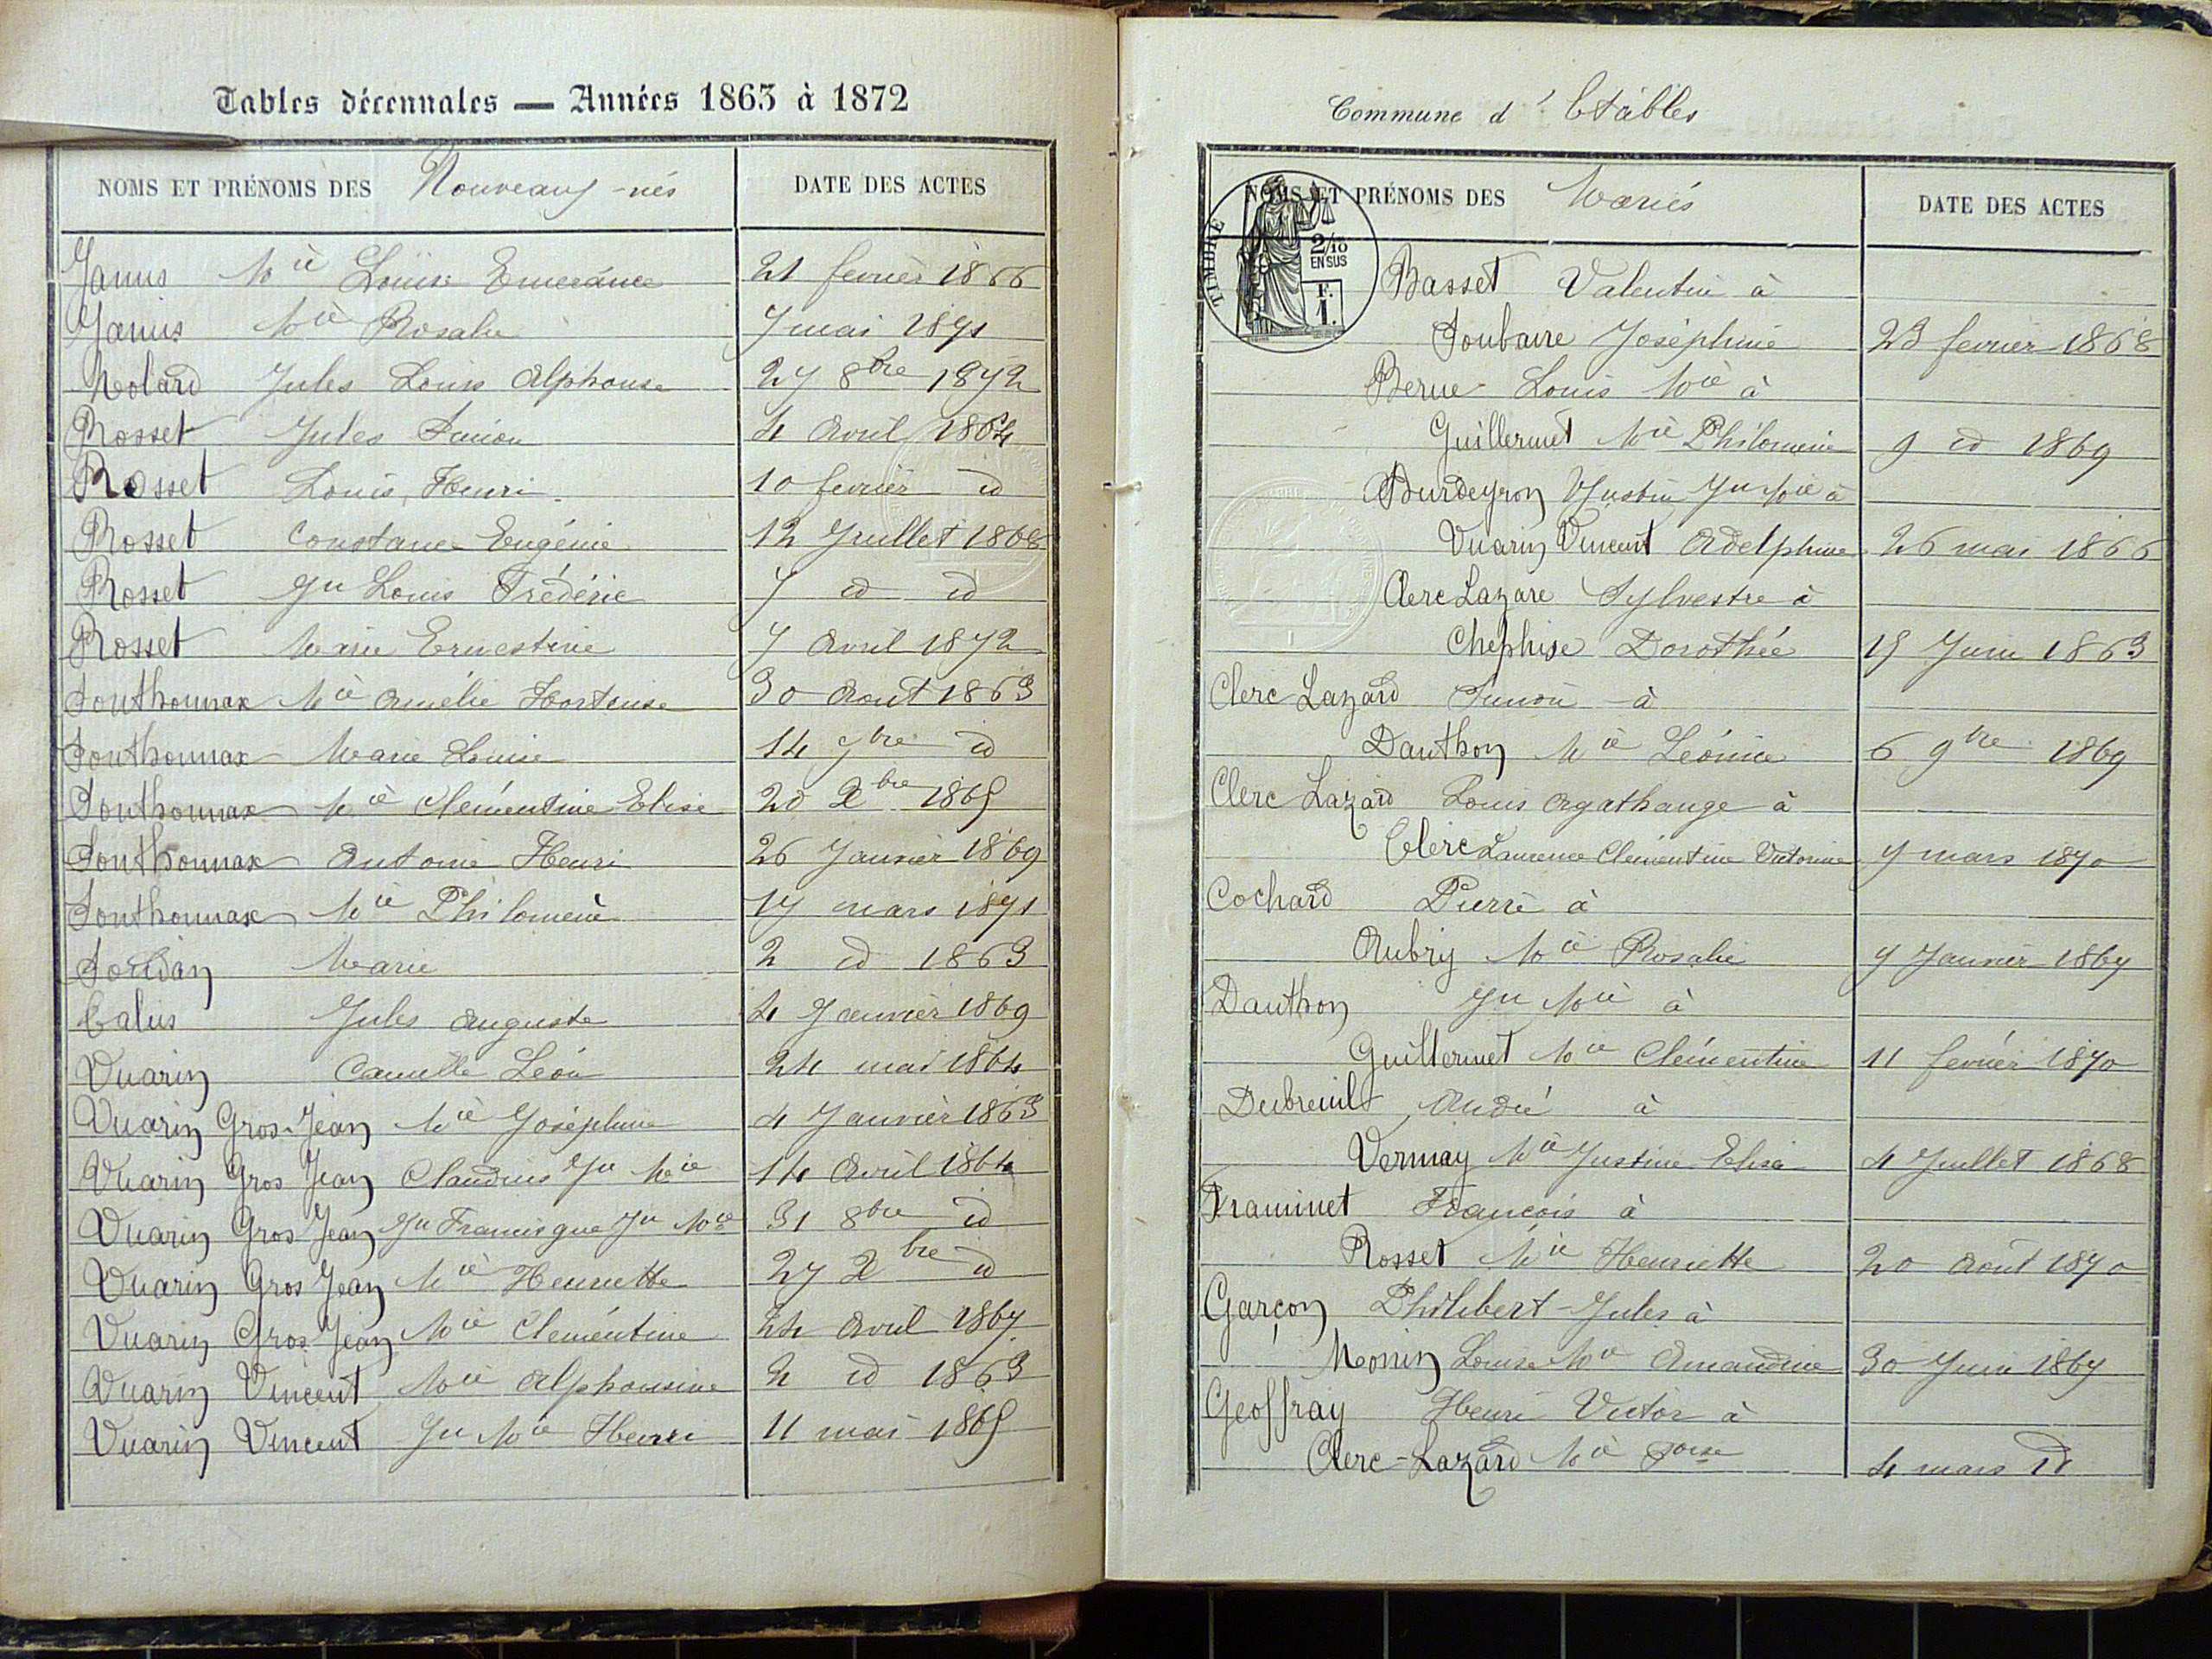 Tables décennales — Années 1863 à 1872
NOMS ET PRÉNOMS DES Nouveaux-nés DATE DES ACTES
Janus Mie Louise Emerance 21 fevrier 1866
Janus Mie Rosalie 7 mai 1871
Molard Jules Louis Alphonse 27 8bre 1872
Rosset Jules Simon 4 Avril 1864
Rosset Louis Henri 10 fevrier id
Rosset Constance Eugénie 12 Juillet 1868
Rosset Jn Louis Frédéric 7 id id
Rosset Marie Ernestine 7 Avril 1872
Sonthonnax Mie Amélie Hortense 30 Aout 1863
Sonthonnax Marie Louise 14 9bre id
Sonthonnax Mie Clémentine Elise 20 Xbre 1865
Sonthonnax Antoine Henri 26 Janvier 1869
Sonthonnax Mie Philomène 17 mars 1871
Marie 2 id 1863
Jules Auguste 4 Janvier 1869
Vuarin Camille Léon 24 mai 1864
Vuarin Gros-Jean Mie Joséphine 4 Janvier 1863
Vuarin Gros Jean Claudius Jn Mie 14 Avril 1864
Vuarin Gros Jean Jn Francisque Jn Mie 31 8bre id
Vuarin Gros Jean Mie Henriette 27 Xbre id
Vuarin Gros Jean Mie Clémentine 24 Avril 1867
Vuarin Vincent Mie Alphonsine 2 id 1863
Vuarin Vincent Jn Mie Henri 11 mai 1865
Commune d'Etables
NOMS ET PRÉNOMS DES Mariés DATE DES ACTES
TIMBRE
2/10
EN SUS
F.
1.
Basset Valentin à
Soubaire Joséphine 23 fevrier 1868
Berne Louis Mie à
Guillermet Mie Philomène 9 id 1869
Burdeyron Justin Jn Mie à
Vuarin Vincent Adelphine 26 mai 1866
Clerc Lazare Sylvestre à
Chephise Dorothée 15 Juin 1863
Clerc Lazard Simon à
Danthon Mie Léonie 6 9bre 1869
Clerc Lazard Louis Agathange à
Clerc Laurence Clementine Victorine 7 mars 1870
Cochard Pierre à
Aubry Mie Rosalie 7 Janvier 1867
Danthon Jn Mie à
Guillermet Mie Clémentine 11 fevrier 1870
Dubreuil André à
Vermay Mie Justine Elisa 4 Juillet 1868
Framinet François à
Rosset Mie Henriette 20 Août 1870
Garçon Philibert-Jules à
Monin Louise Mie Amandine 30 Juin 1867
Geoffray Henri Victor à
Clerc-Lazard Mie Foise 4 mars id